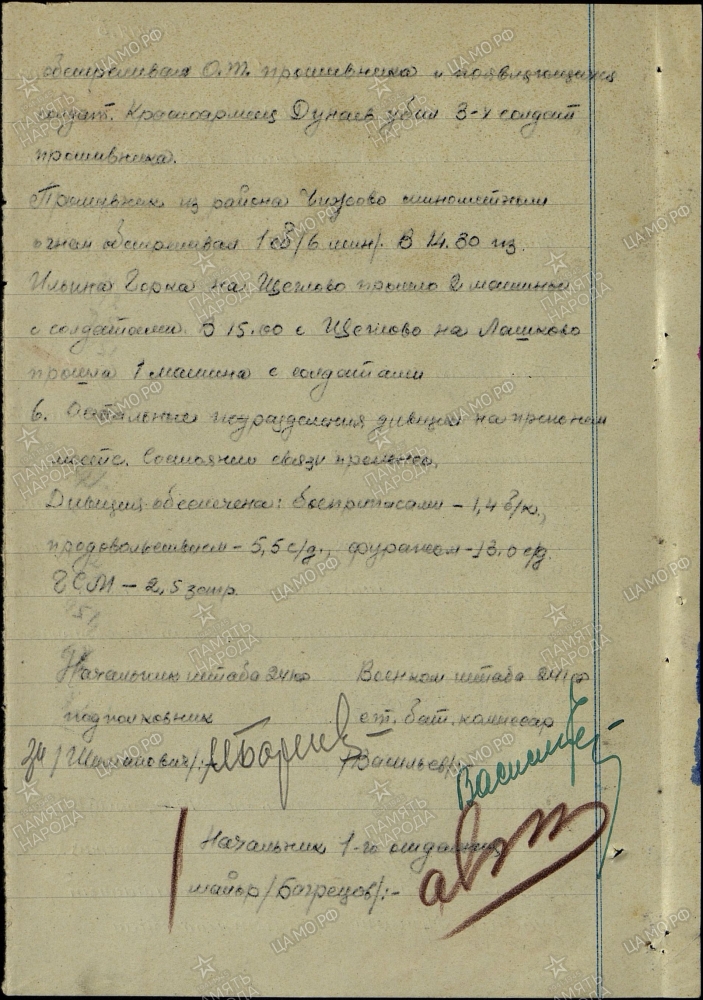 обстреливая О.Т. противника и появляющихся
солдат. Красноармеец Дунаев убил 3-х солдат
противника.
Противник из района Чижово минометным
огнем обстреливал 1 сб /6 мин/. В 14.30 из
Ильина Горка на Щеглово прошло 2 машины
с солдатами. В 15.00 с Щеглово на Лашково
прошла 1 машина с солдатами
6. Остальные подразделения дивизии на прежнем
месте. Состояние связи прежнее.
Дивизия обеспечена: боеприпасами – 1,4 б/к.,
продовольствием – 5,5 с/д., фуражом – 13.0 с/д.
ГСМ – 2,5 запр.
Начальник штаба Военком штаба
подполковник ст. бат. комиссар
/Шиманович/:- /Васильев/:-
Начальник 1-го отделения
майор /Багрецов/:-